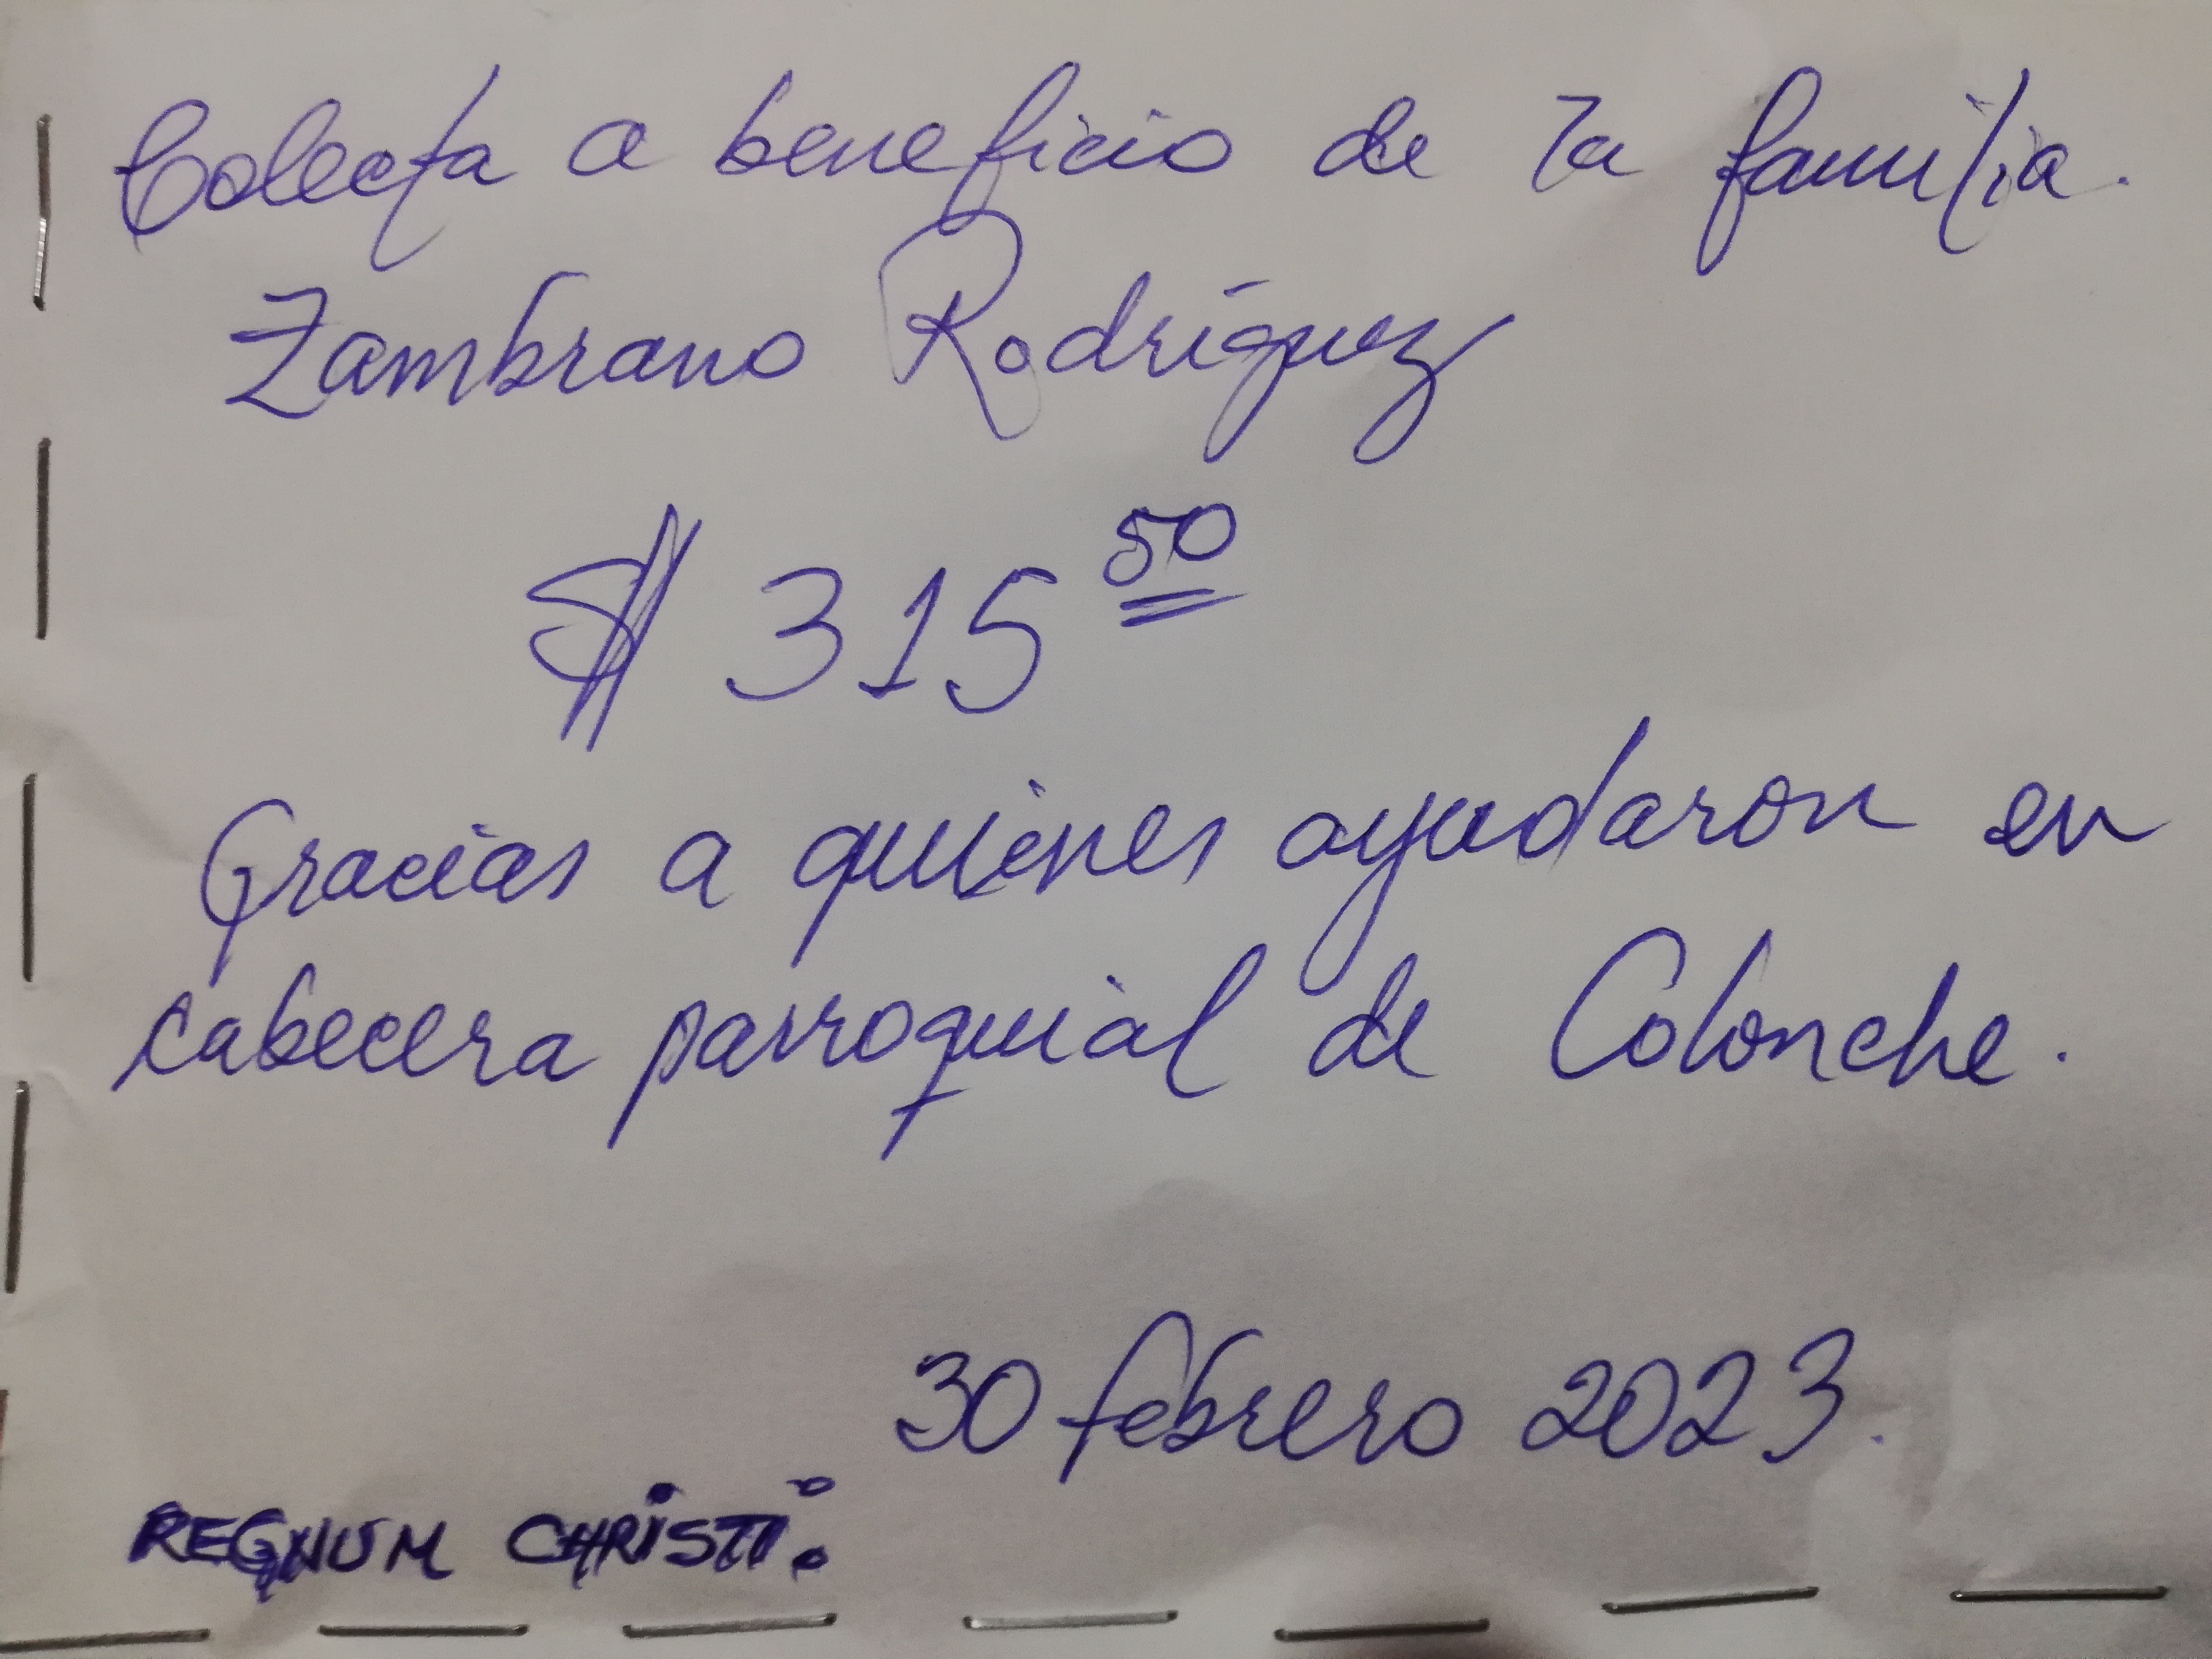 Colecta a beneficio de la familia.
Zambrano Rodríguez
$ 315 50
Gracias a quienes ayudaron en
cabecera parroquial de Colonche.
30 febrero 2023.
REGNUM CHRISTI.